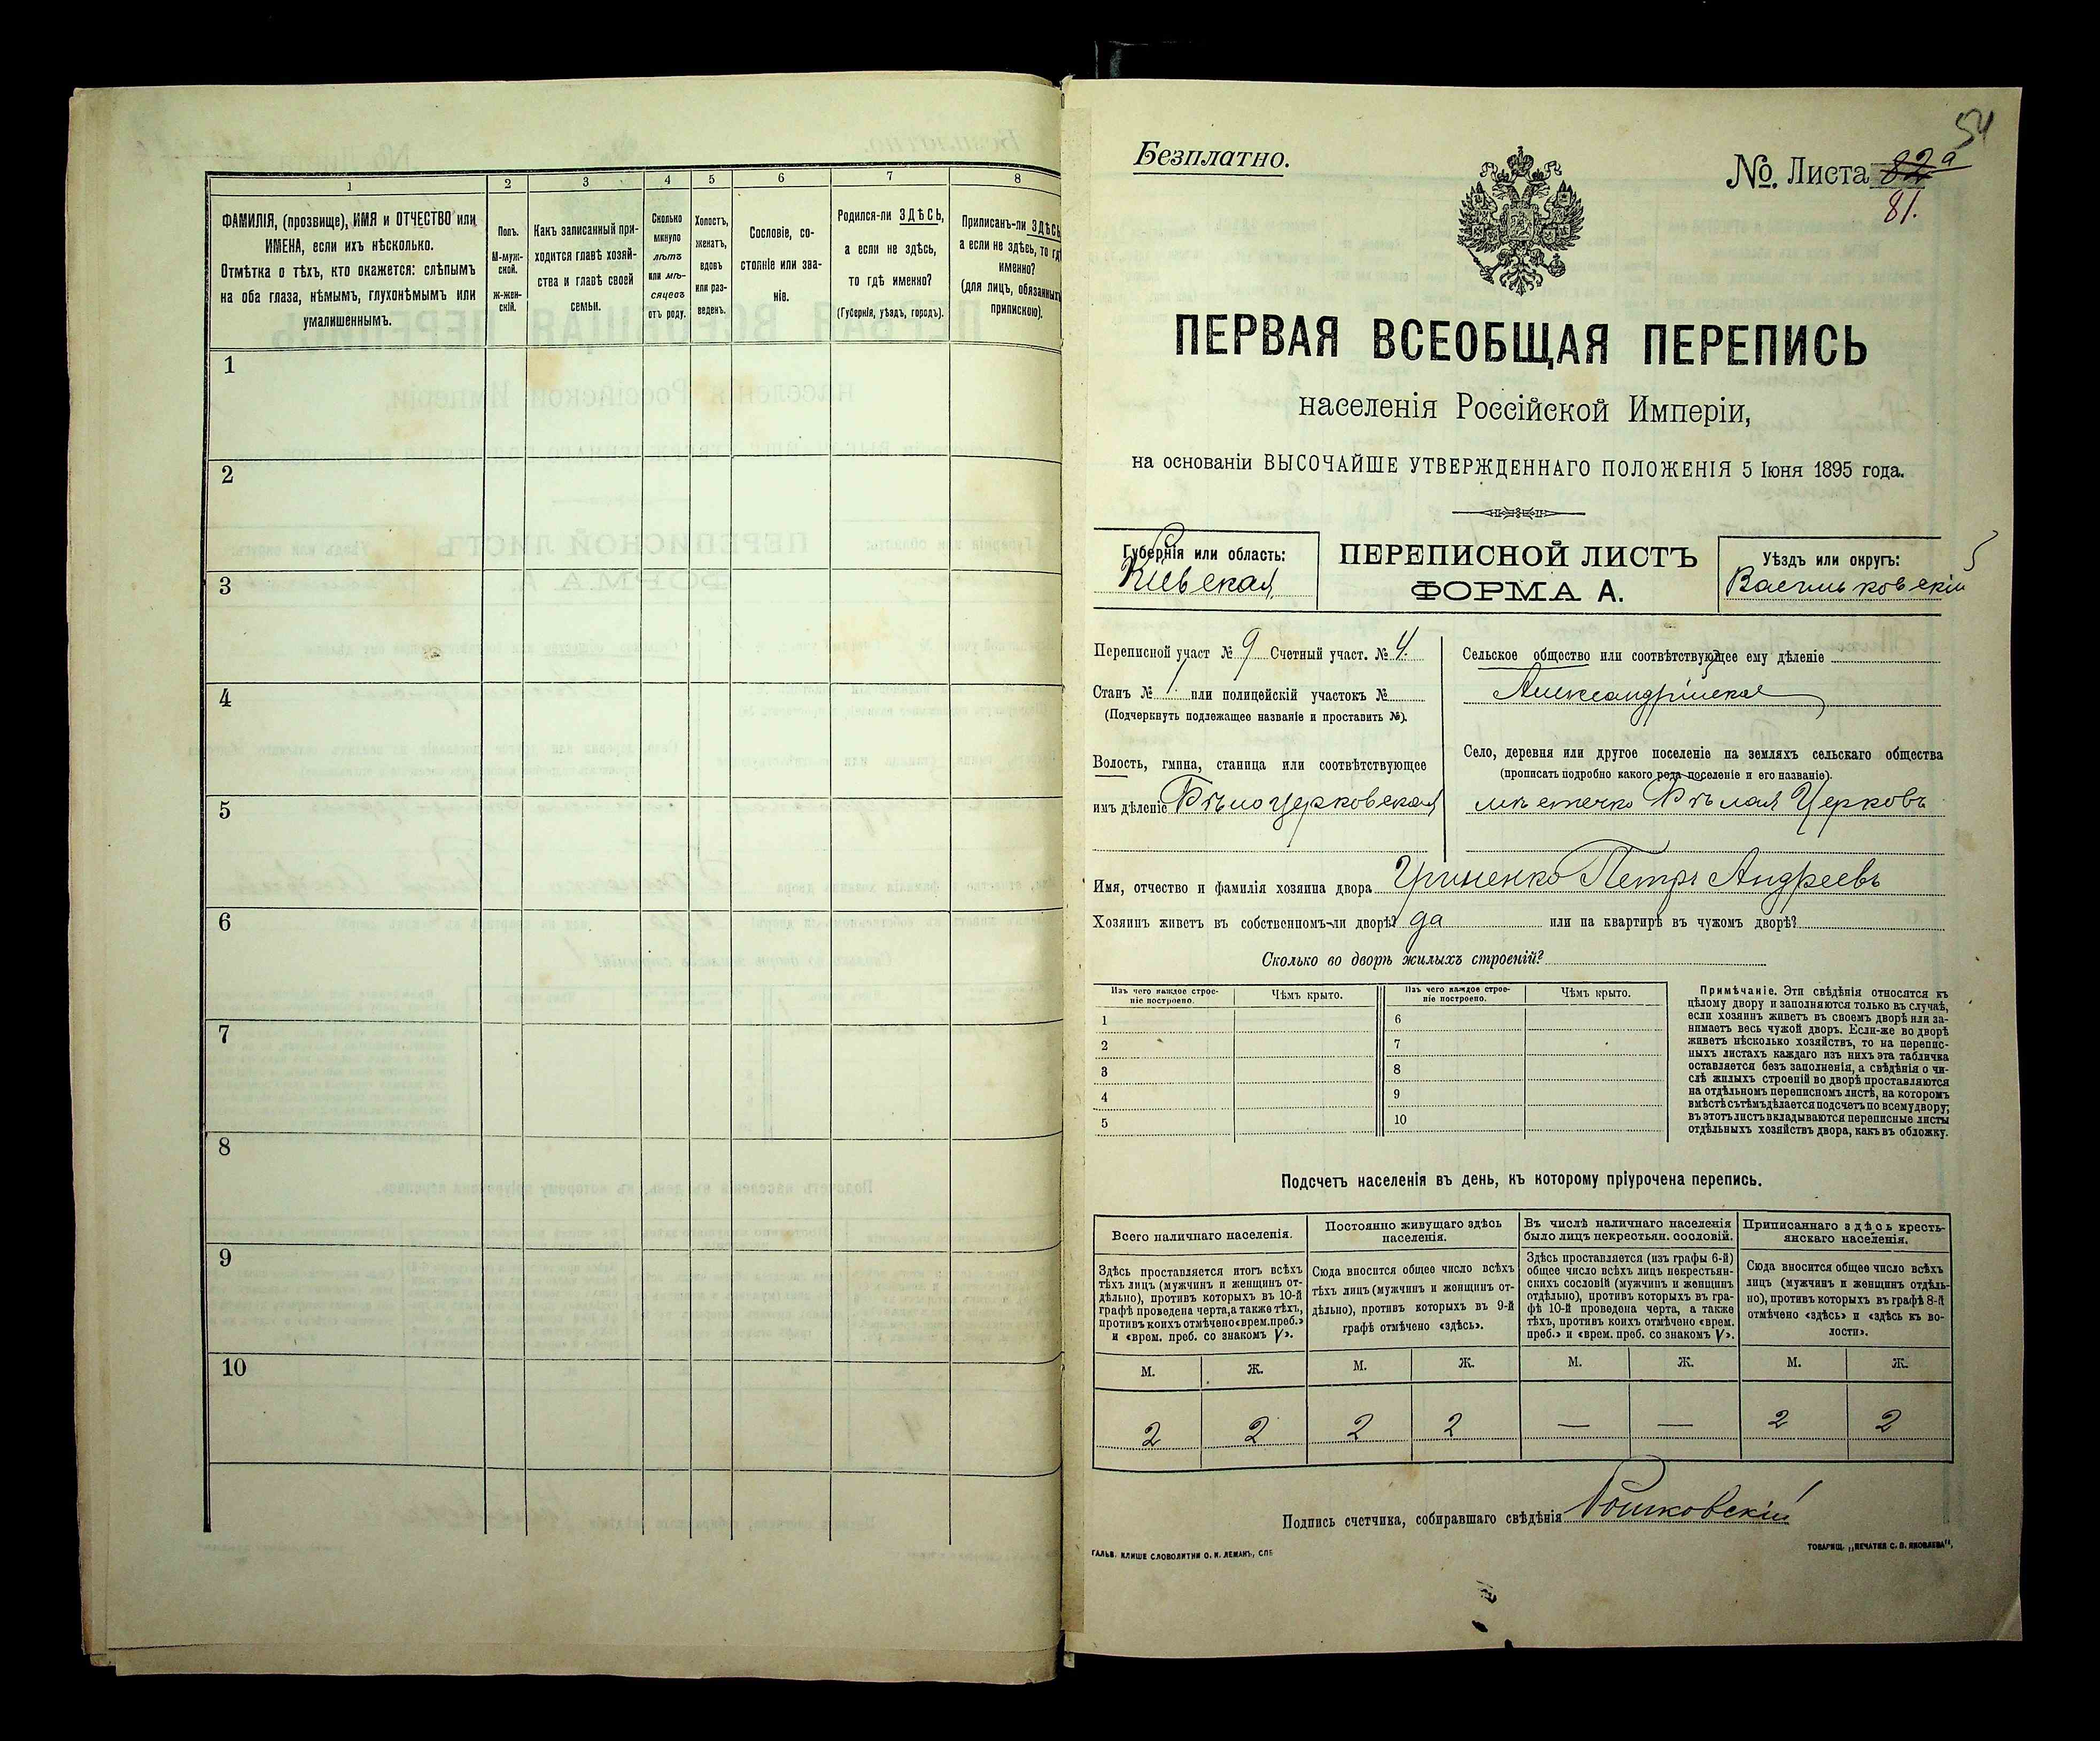 1
2
3
4
5
6
7
8
ФАМИЛІЯ, (прозвище), ИМЯ и ОТЧЕСТВО или
ИМЕНА, если ихъ нѣсколько.
Отмѣтка о тѣхъ, кто окажется: слѣпымъ
на оба глаза, нѣмымъ, глухонѣмымъ или
умалишеннымъ.
Полъ.
М-муж-
ской.
Ж-жен-
скій.
Какъ записанный при-
ходится главѣ хозяй-
ства и главѣ своей
семьи.
Сколько
минуло
лѣтъ
или мѣ-
сяцевъ
отъ роду.
Холостъ,
женатъ,
вдовъ
или раз-
веденъ.
Сословіе, со-
стояніе или зва-
ніе.
Родился-ли ЗДѢСЬ,
а если не здѣсь,
то гдѣ именно?
(Губернія, уѣздъ, городъ).
Приписанъ-ли ЗДѢСЬ
а если не здѣсь, то гдѣ
именно?
(для лицъ, обязанныхъ
припискою).
1
2
3
4
5
6
7
8
9
10
54
Безплатно.
№. Листа 82а
81.
ПЕРВАЯ ВСЕОБЩАЯ ПЕРЕПИСЬ
населенія Россійской Имперіи,
на основаніи ВЫСОЧАЙШЕ УТВЕРЖДЕННАГО ПОЛОЖЕНІЯ 5 Іюня 1895 года.
Губернія или область:
Кіевская
ПЕРЕПИСНОЙ ЛИСТЪ
ФОРМА А.
Уѣздъ или округъ:
Васильковскій
Переписной участ № 9 Счетный участ. № 4.
Станъ № 1. или полицейскій участокъ №
(Подчеркнуть подлежащее названіе и проставить №).
Волость, гмина, станица или соотвѣтствующее
имъ дѣленіе Бѣлоцерковская
Сельское общество или соотвѣтствующее ему дѣленіе
Александрійское
Село, деревня или другое поселеніе на земляхъ сельскаго общества
(прописать подробно какого рода поселеніе и его названіе).
мѣстечко Бѣлая Церковь
Имя, отчество и фамилія хозяина двора Гриненко Петръ Андреевъ
Хозяинъ живетъ въ собственномъ-ли дворѣ? да или на квартирѣ въ чужомъ дворѣ?
Сколько во дворѣ жилыхъ строеній?
Изъ чего каждое строе-
ніе построено.
Чѣмъ крыто.
Изъ чего каждое строе-
ніе построено.
Чѣмъ крыто.
1
2
3
4
5
6
7
8
9
10
Примѣчаніе. Эти свѣдѣнія относятся къ
цѣлому двору и заполняются только въ случаѣ,
если хозяинъ живетъ въ своемъ дворѣ или за-
нимаетъ весь чужой дворъ. Если-же во дворѣ
живетъ нѣсколько хозяйствъ, то на перепис-
ныхъ листахъ каждаго изъ нихъ эта табличка
оставляется безъ заполненія, а свѣдѣнія о чи-
слѣ жилыхъ строеній во дворѣ проставляются
на отдѣльномъ переписномъ листѣ, на которомъ
вмѣстѣ съ тѣмъ дѣлается подсчетъ по всему двору;
въ этотъ листъ вкладываются переписные листы
отдѣльныхъ хозяйствъ двора, какъ въ обложку.
Подсчетъ населенія въ день, къ которому пріурочена перепись.
Всего наличнаго населенія.
Постоянно живущаго здѣсь
населенія.
Въ числѣ наличнаго населенія
было лицъ некрестьян. сословій.
Приписаннаго здѣсь кресть-
янскаго населенія.
Здѣсь проставляется итогъ всѣхъ
тѣхъ лицъ (мужчинъ и женщинъ от-
дѣльно), противъ которыхъ въ 10-й
графѣ проведена черта, а также тѣхъ,
противъ коихъ отмѣчено «врем. преб.»
и «врем. преб. со знакомъ V».
Сюда вносится общее число всѣхъ
тѣхъ лицъ (мужчинъ и женщинъ от-
дѣльно), противъ которыхъ въ 9-й
графѣ отмѣчено «здѣсь».
Здѣсь проставляется (изъ графы 6-й)
общее число всѣхъ лицъ некрестьян-
скихъ сословій (мужчинъ и женщинъ
отдѣльно), противъ которыхъ въ гра-
фѣ 10-й проведена черта, а также
тѣхъ, противъ коихъ отмѣчено «врем.
преб.» и «врем. преб. со знакомъ V».
Сюда вносится общее число всѣхъ
лицъ (мужчинъ и женщинъ отдѣль-
но), противъ которыхъ въ графѣ 8-й
отмѣчено «здѣсь» и «здѣсь къ во-
лости».
М. Ж. М. Ж. М. Ж. М. Ж.
2 2 2 2 — — 2 2
Подпись счетчика, собиравшаго свѣдѣнія
ГАЛЬВ. КЛИШЕ СЛОВОЛИТНИ О. И. ЛЕМАНЪ, СПБ
ТОВАРИЩ. „ПЕЧАТНЯ С. П. ЯКОВЛЕВА",